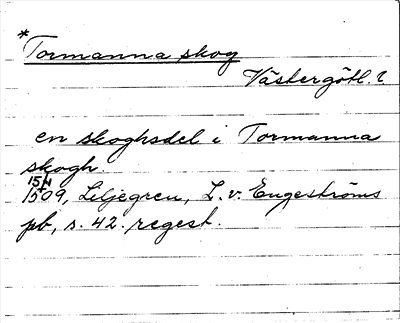 *Tormanna skog
Västergötl.?
en skoghsdel i Tormanna
skogh.
15/4
1509, Liljegren, L. v. Engeströms
pb, s. 42. regest.